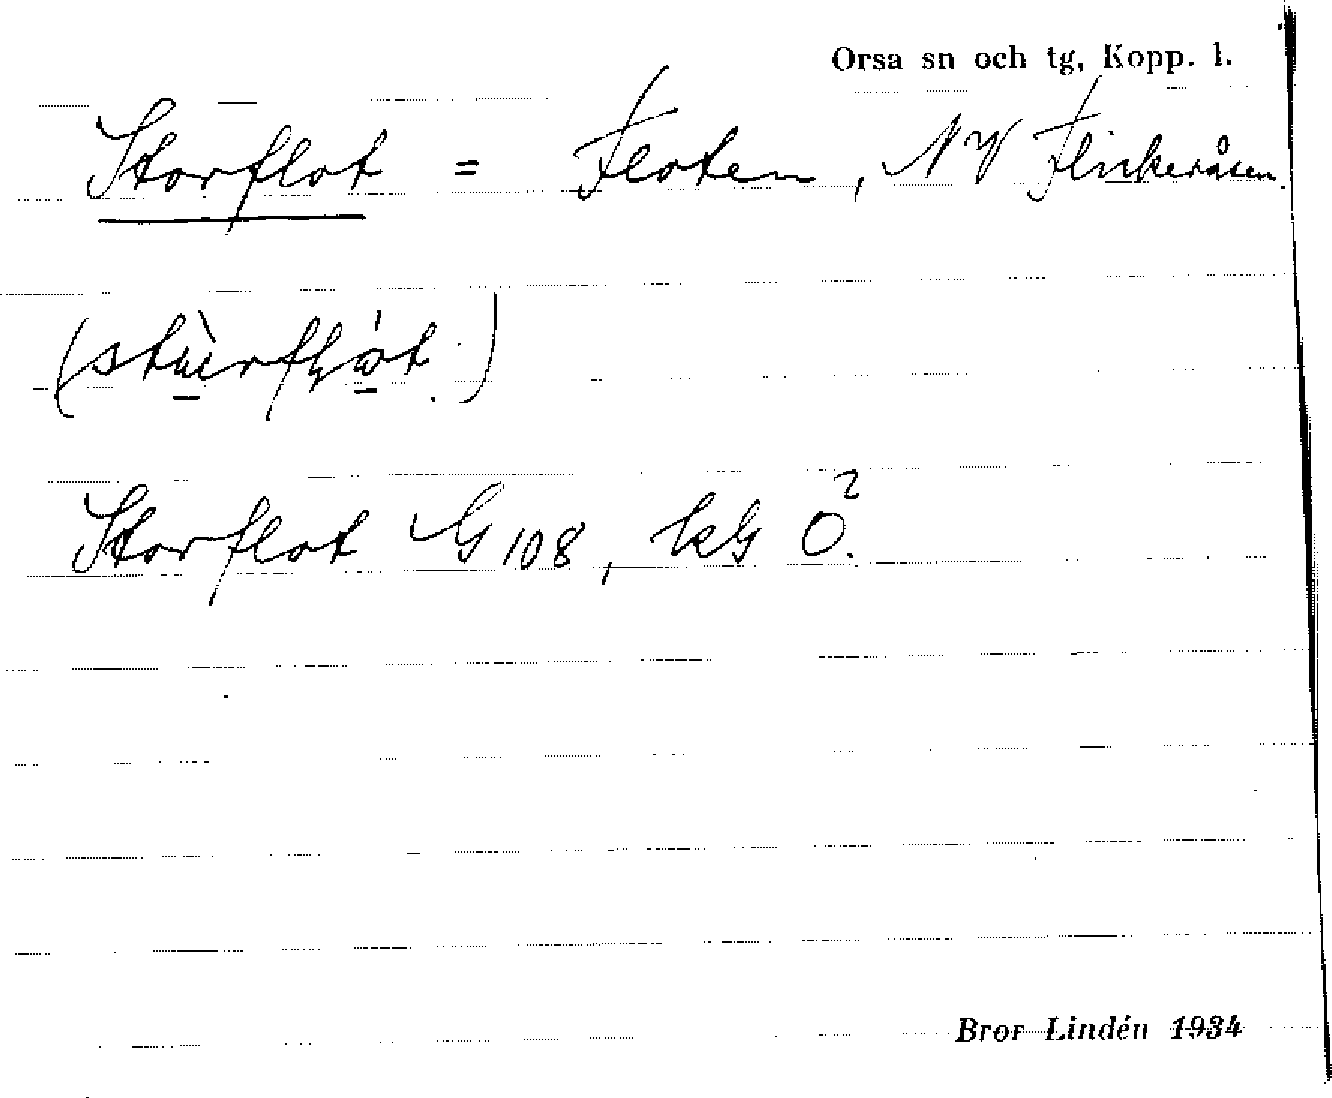 Orsa sn och tg, Kopp. l.
Storflot = Floten, NV Flickeråsen.
Storflot G 108, kG Ö².
Bror Lindén 1934